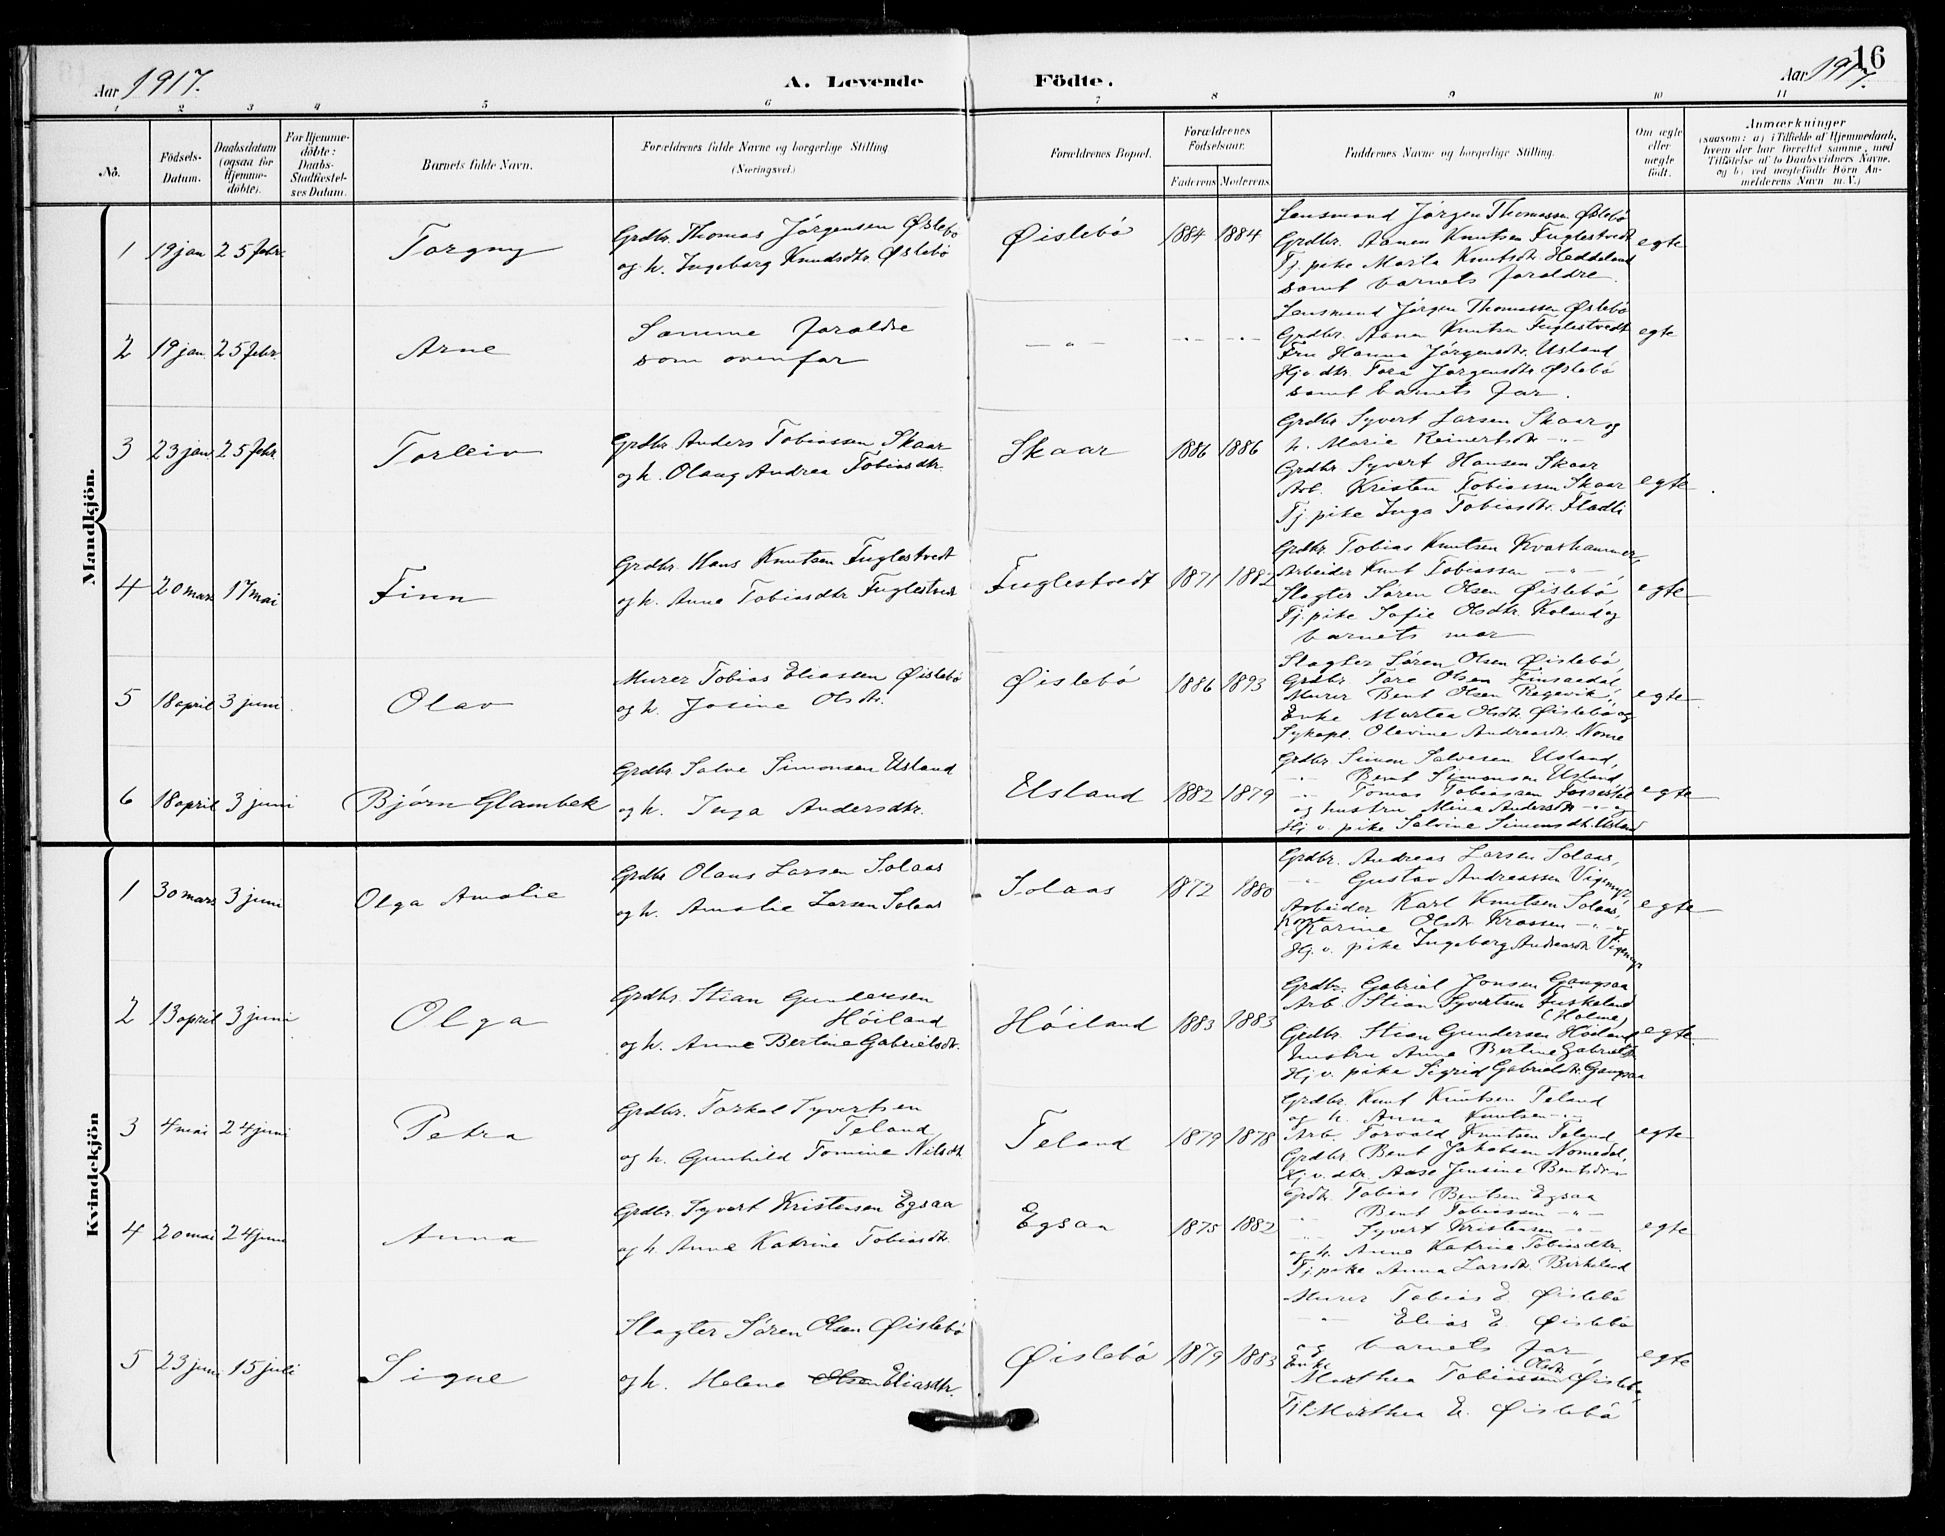 16
Aar 1917.
A. Levende Födte.
Aar 1917.
1 2 3 4 5 6 7 8 9 10 11
No.
Födsels-Datum.
Daabsdatum (ogsaa for Hjemmedöbte).
For Hjemmedöbte: Daabs-Stadfæstelses Datum.
Barnets fulde Navn.
Forældrenes fulde Navne og borgerlige Stilling (Næringsvei.)
Forældrenes Bopæl.
Forældrenes Födselsaar.
Faderens Moderens
Faddernes Navne og borgerlige Stilling.
Om ægte eller uægte født.
Anmærkninger
(saasom: a) i Tilfælde af Hjemmedaab, hvem der har forrettet samme, med Tilföielse af to Daabsvidners Navne, og b) ved uægtefödte Börn Anmelderens Navn m. V.)
Mandkjön.
1 19 jan 25 febr. Torgny
Grdbr. Thomas Jørgensen Øslebø
og h. Ingeborg Knudsdtr. Øslebø
Øislebø 1884 1884
Lensmand Jørgen Thomassen Øslebø
Grdbr. Aanen Knutsen Fuglestvedt
Tj. pike Marta Knutsdt. Heddeland
samt barnets foraldre.
egte
2 19 jan. 25 febr. Arne
Samme foraldre
som ovenfor
— " — - " - - " -
Lensmand Jørgen Thomassen Øslebø
Grdbr. Aanen Knutsen Fuglestvedt
Fru Hanna Jørgensdtr. Usland
Hjv. dtr. Tora Jørgensdtr. Øslebø
samt barnets far.
egte
3 23 jan 25 febr. Torleiv
Grdbr Anders Tobiassen Skaar
og h. Olaug Andrea Tobiasdtr.
Skaar 1886 1886
Grdbr Syvert Larsen Skaar og
h. Marie Reinertsdtr — " —
Grdbr Syvert Hansen Skaar
Arb. Kristen Tobiassen Skaar
Tj. pike Inga Tobiasdtr. Fladli
egte
4 20 mars 17 mai Finn
Grdbr. Hans Knutsen Fuglestvedt
og h. Anna Tobiasdtr Fuglestvedt
Fuglestvedt 1871 1882
Grdbr. Tobias Knutsen Kvarhammer,
Arbeider Knut Tobiassen — " —,
Slagter Søren Olsen Øislebø,
Tj. pike Sofie Olsdtr. Koland og
barnets mor
egte
5 18 april 3 juni Olav
Murer Tobias Eliassen Øislebø
og h. Josine Olsdtr.
Øislebø 1886 1893
Slagter Søren Olsen Øislebø,
Grdbr Tore Olsen Finsaadal,
Murer Bent Olsen Regevik,
Enke Martea Olsdtr. Øislebø og
Sykepl. Olevine Andreasdtr. Nome
egte
6 18 april 3 juni Bjørn Glambek
Grdbr Salve Simonsen Usland
og h. Inga Andersdtr.
Usland 1882 1879
Grdbr. Simon Salvesen Usland,
" Bent Simonsen Usland,
" Tomas Tobiassen
og hustru Mina Andersdtr — " — og
Hj. v. pike Salvine Simonsdtr. Usland
egte
Kvindekjön
1 30 mars 3 juni Olga Amalie
Grdbr Olaus Larsen Solaas
og h. Amalie Larsen Solaas
Solaas 1872 1880
Grdbr. Andreas Larsen Solaas,
— " — Gustav Andreassen Vigemyr,
Arbeider Karl Knutsen Solaas,
Kone Karine Olsdtr. Krossen — " — og
Hj. v. pike Ingeborg Andreasdtr. Vigemyr
egte
2 13 april 3 juni Olga
Grdbr. Stian Gundersen
Høiland
og h. Anne Bertine Gabrielsdtr.
Høiland 1883 1883
Grdbr. Gabriel Jonsen Gangsaa
Arb. Stian Syvertsen Fuskeland
(Holme)
Grdbr. Stian Gundersen Høiland
hustru Anne Bertine Gabrielsdtr
Hj. v. pike Sigrid Gabrielsdtr. Gangsaa
egte
3 4 mai 24 juni Petra
Grdbr. Torkel Syvertsen
Teland
og h. Gunhild Tomine Nilsdtr.
Teland 1879 1878
Grdbr. Knut Knutsen Teland
og h. Anna Knutsen — " —
Arb. Torvald Knutsen Teland
Grdbr. Bent Jakobsen Nomedal,
Hj. v. dtr. Aase Jensine Bentsden
egte
4 20 mai 24 juni Anna
Grdbr. Syvert Kristensen Egsaa
og h. Anne Katrine Tobiasdtr.
Egsaa 1875 1882
Grdbr. Tobias Bentsen Egsaa
" Bent Tobiassen — " —
" Syvert Kristensen — " —
og h. Anne Katrine Tobiasdtr.
Tj. pike Anna Larsdtr. Birkeland
egte
5 23 juni 15 juli Signe
Slagter Søren Olsen Øislebø
og h. Helene Olsen Eliasdtr.
Øislebø 1879 1883
Murer Tobias E. Øislebø
— " — Elias E. Øislebø
og barnets far,
Enke Marthea Tobiassen Olsdtr Øislebø,
Marthea E. Øislebø
egte